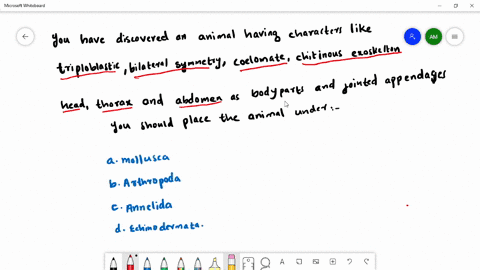 Microsoft Whiteboard
AM
you have discovered an animal having characters like
triploblastic, bilateral symmetry, coelomate, chitinous exoskelton
head, thorax and abdomen as bodyparts and jointed appendages
you should place the animal under:-
a. mollusca
b. Arthropoda
c. Annelida
d. Echinodermata.